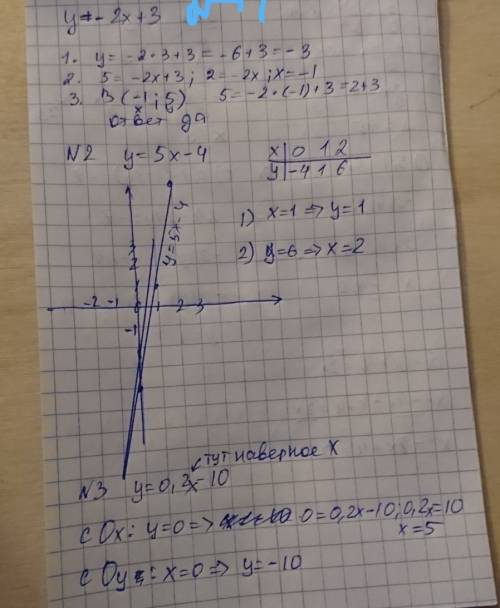 y=-2x+3
1. y= -2·3+3=-6+3=-3
2. 5=-2x+3; 2=-2x; x=-1
3. B(-1;5) 5=-2·(-1)+3=2+3
x y
ответ да
N2 y=5x-4
x|0 1 2
y|-4 1 6
y=5x-4
1) x=1⇒y=1
2) y=6⇒x=2
2
-2 -1 1 2 3
-1
тут наверное x
N3 y=0,2x-10
с Ox: y=0⇒ 0=0,2x-10; 0,2x=10
x=5
с Oy: x=0⇒y=-10